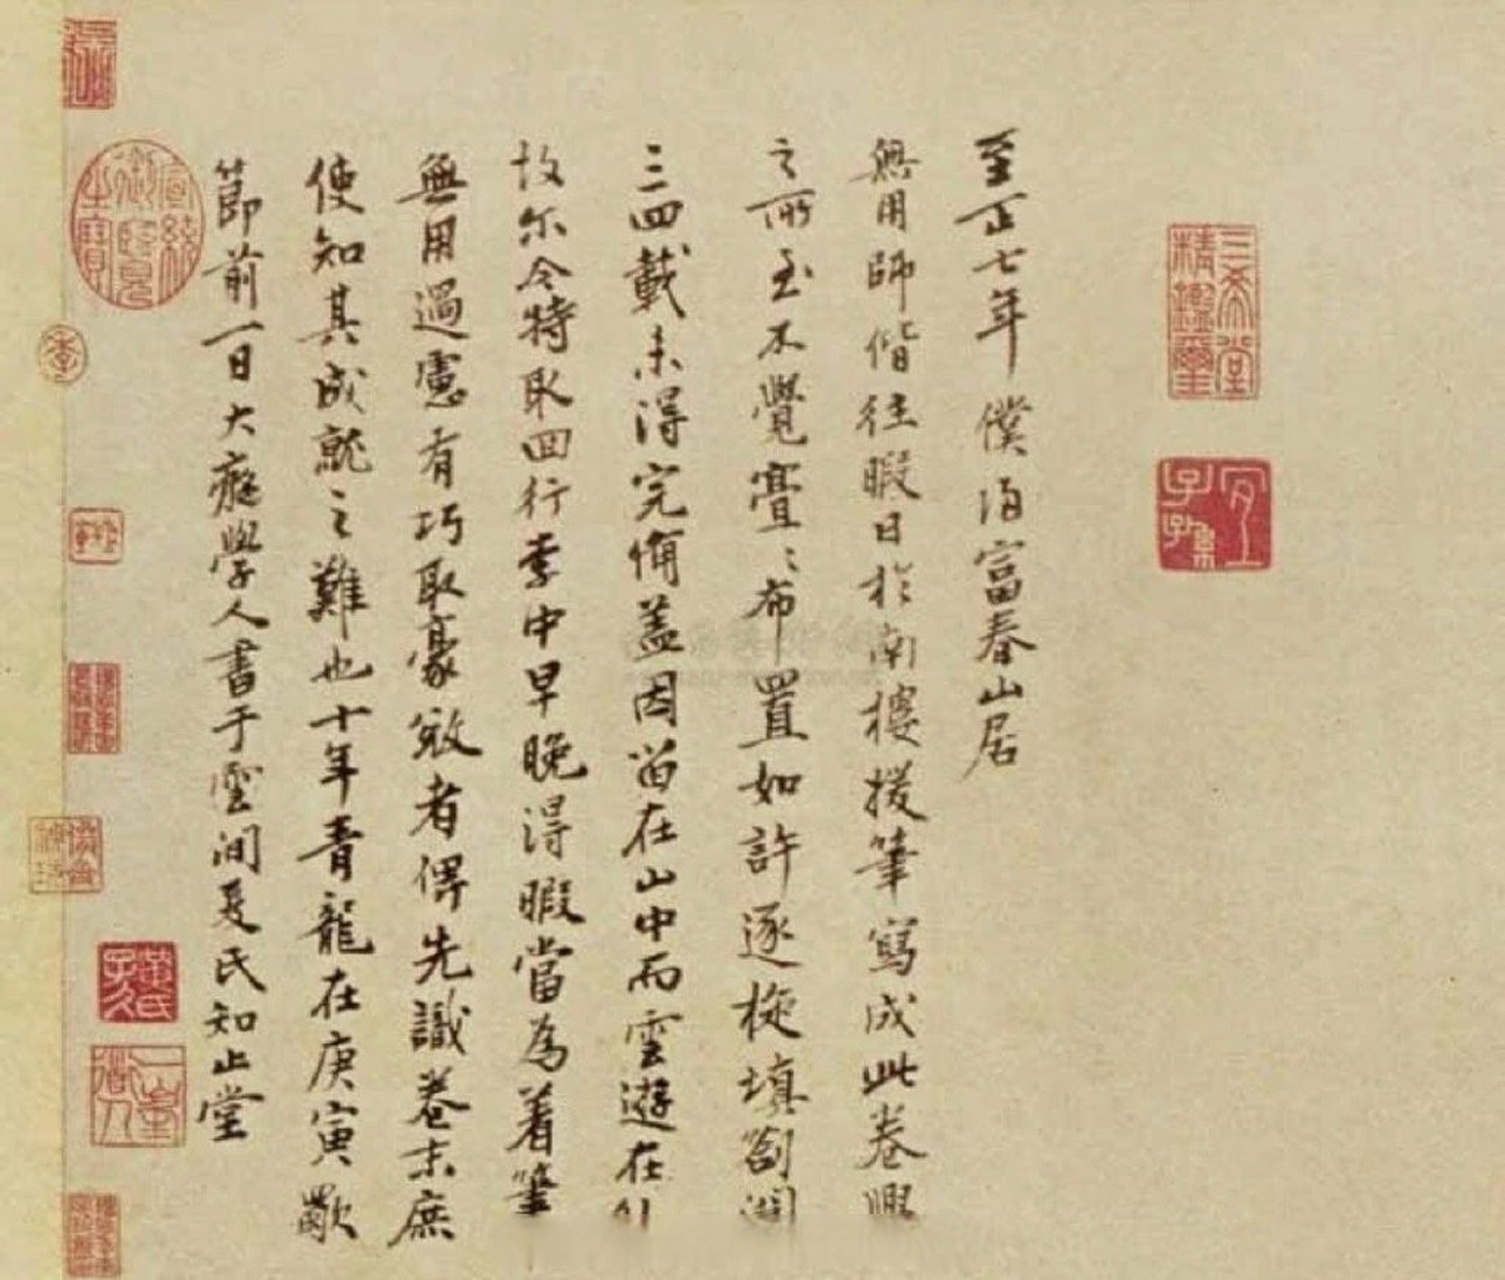 三希堂精鑑璽
宜子孫
至正七年僕歸富春山居
無用師偕往暇日於南樓援筆寫成此卷興
之所至不覺亹〻布置如許逐旋填劄閱
三四載未得完備盖因留在山中而雲遊在外
故尓今特取回行李中早晚得暇當為着筆
無用過慮有巧取豪敚者俾先識卷末庶
使知其成就之難也十年青龍在庚寅歜
節前一日大癡學人書于雲間夏氏知止堂
宣統御覽之寶
黃氏子久
一峯道人